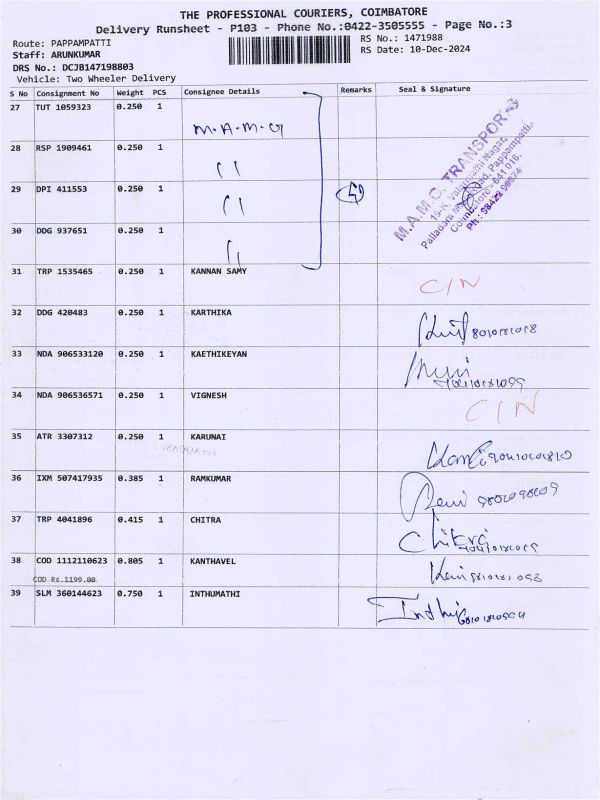 THE PROFESSIONAL COURIERS, COIMBATORE
Delivery Runsheet - P103 - Phone No.:0422-3505555 - Page No.:3
Route: PAPPAMPATTI
RS No.: 1471988
Staff: ARUNKUMAR
RS Date: 10-Dec-2024
DRS No.: DCJB147198803
Vehicle: Two Wheeler Delivery
S No Consignment No Weight PCS Consignee Details Remarks Seal & Signature
27 TUT 1059323 0.250 1 M.A.M.G
28 RSP 1909461 0.250 1 "
29 DPI 411553 0.250 1 "
30 DDG 937651 0.250 1 "
M.A.M.G. TRANSPORT
Coimbatore - 641 016.
31 TRP 1535465 0.250 1 KANNAN SAMY C/N
32 DDG 420483 0.250 1 KARTHIKA
33 NDA 906533120 0.250 1 KAETHIKEYAN
34 NDA 906536571 0.250 1 VIGNESH C/N
35 ATR 3307312 0.250 1 KARUNAI
36 IXM 507417935 0.385 1 RAMKUMAR
37 TRP 4041896 0.415 1 CHITRA
38 COD 1112110623 0.805 1 KANTHAVEL
COD Rs.1199.00
39 SLM 360144623 0.750 1 INTHUMATHI